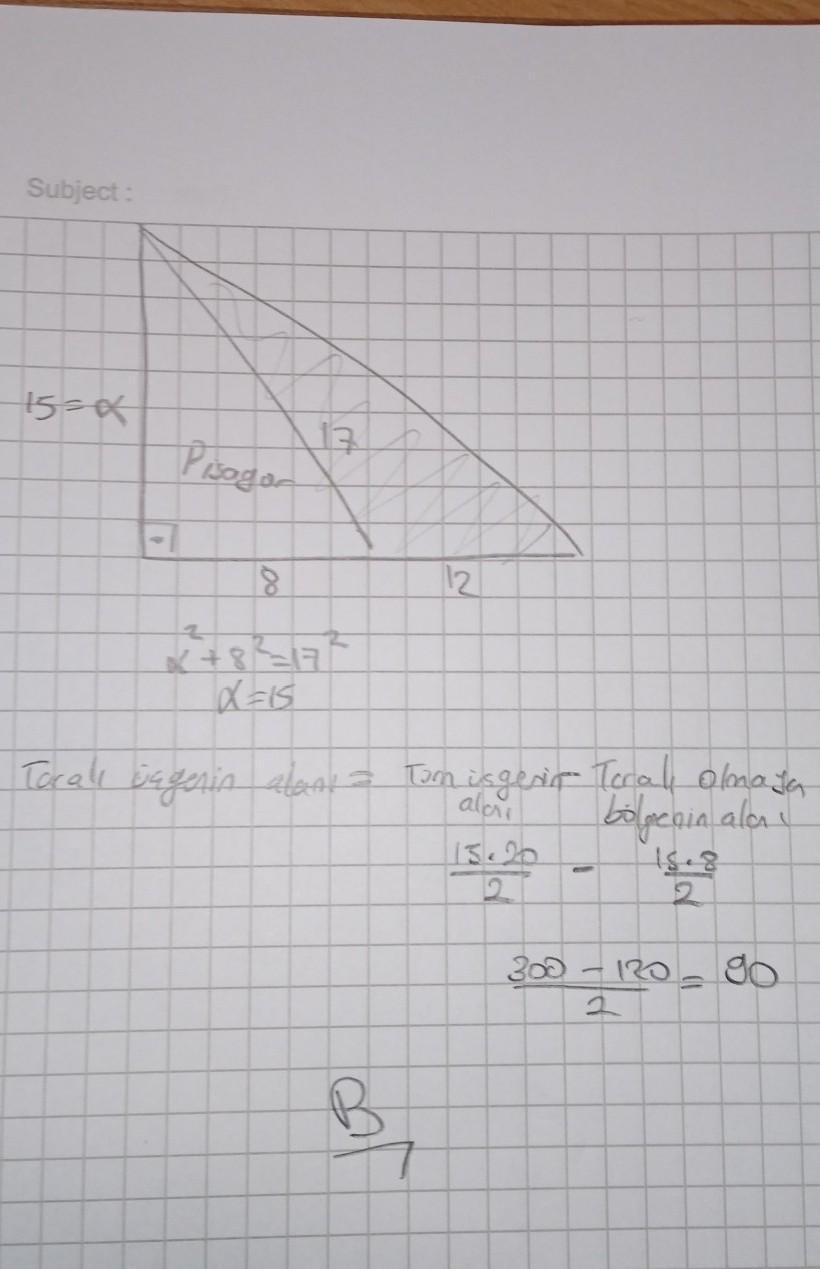 Subject:
15=α
17
Pisagor
8
12
α²+8²=17²
α=15
Taralı üçgenin alanı = Tüm üçgenin alanı - Taralı olmayan bölgenin alanı
15.20/2 - 15.8/2
300-120/2 = 90
B